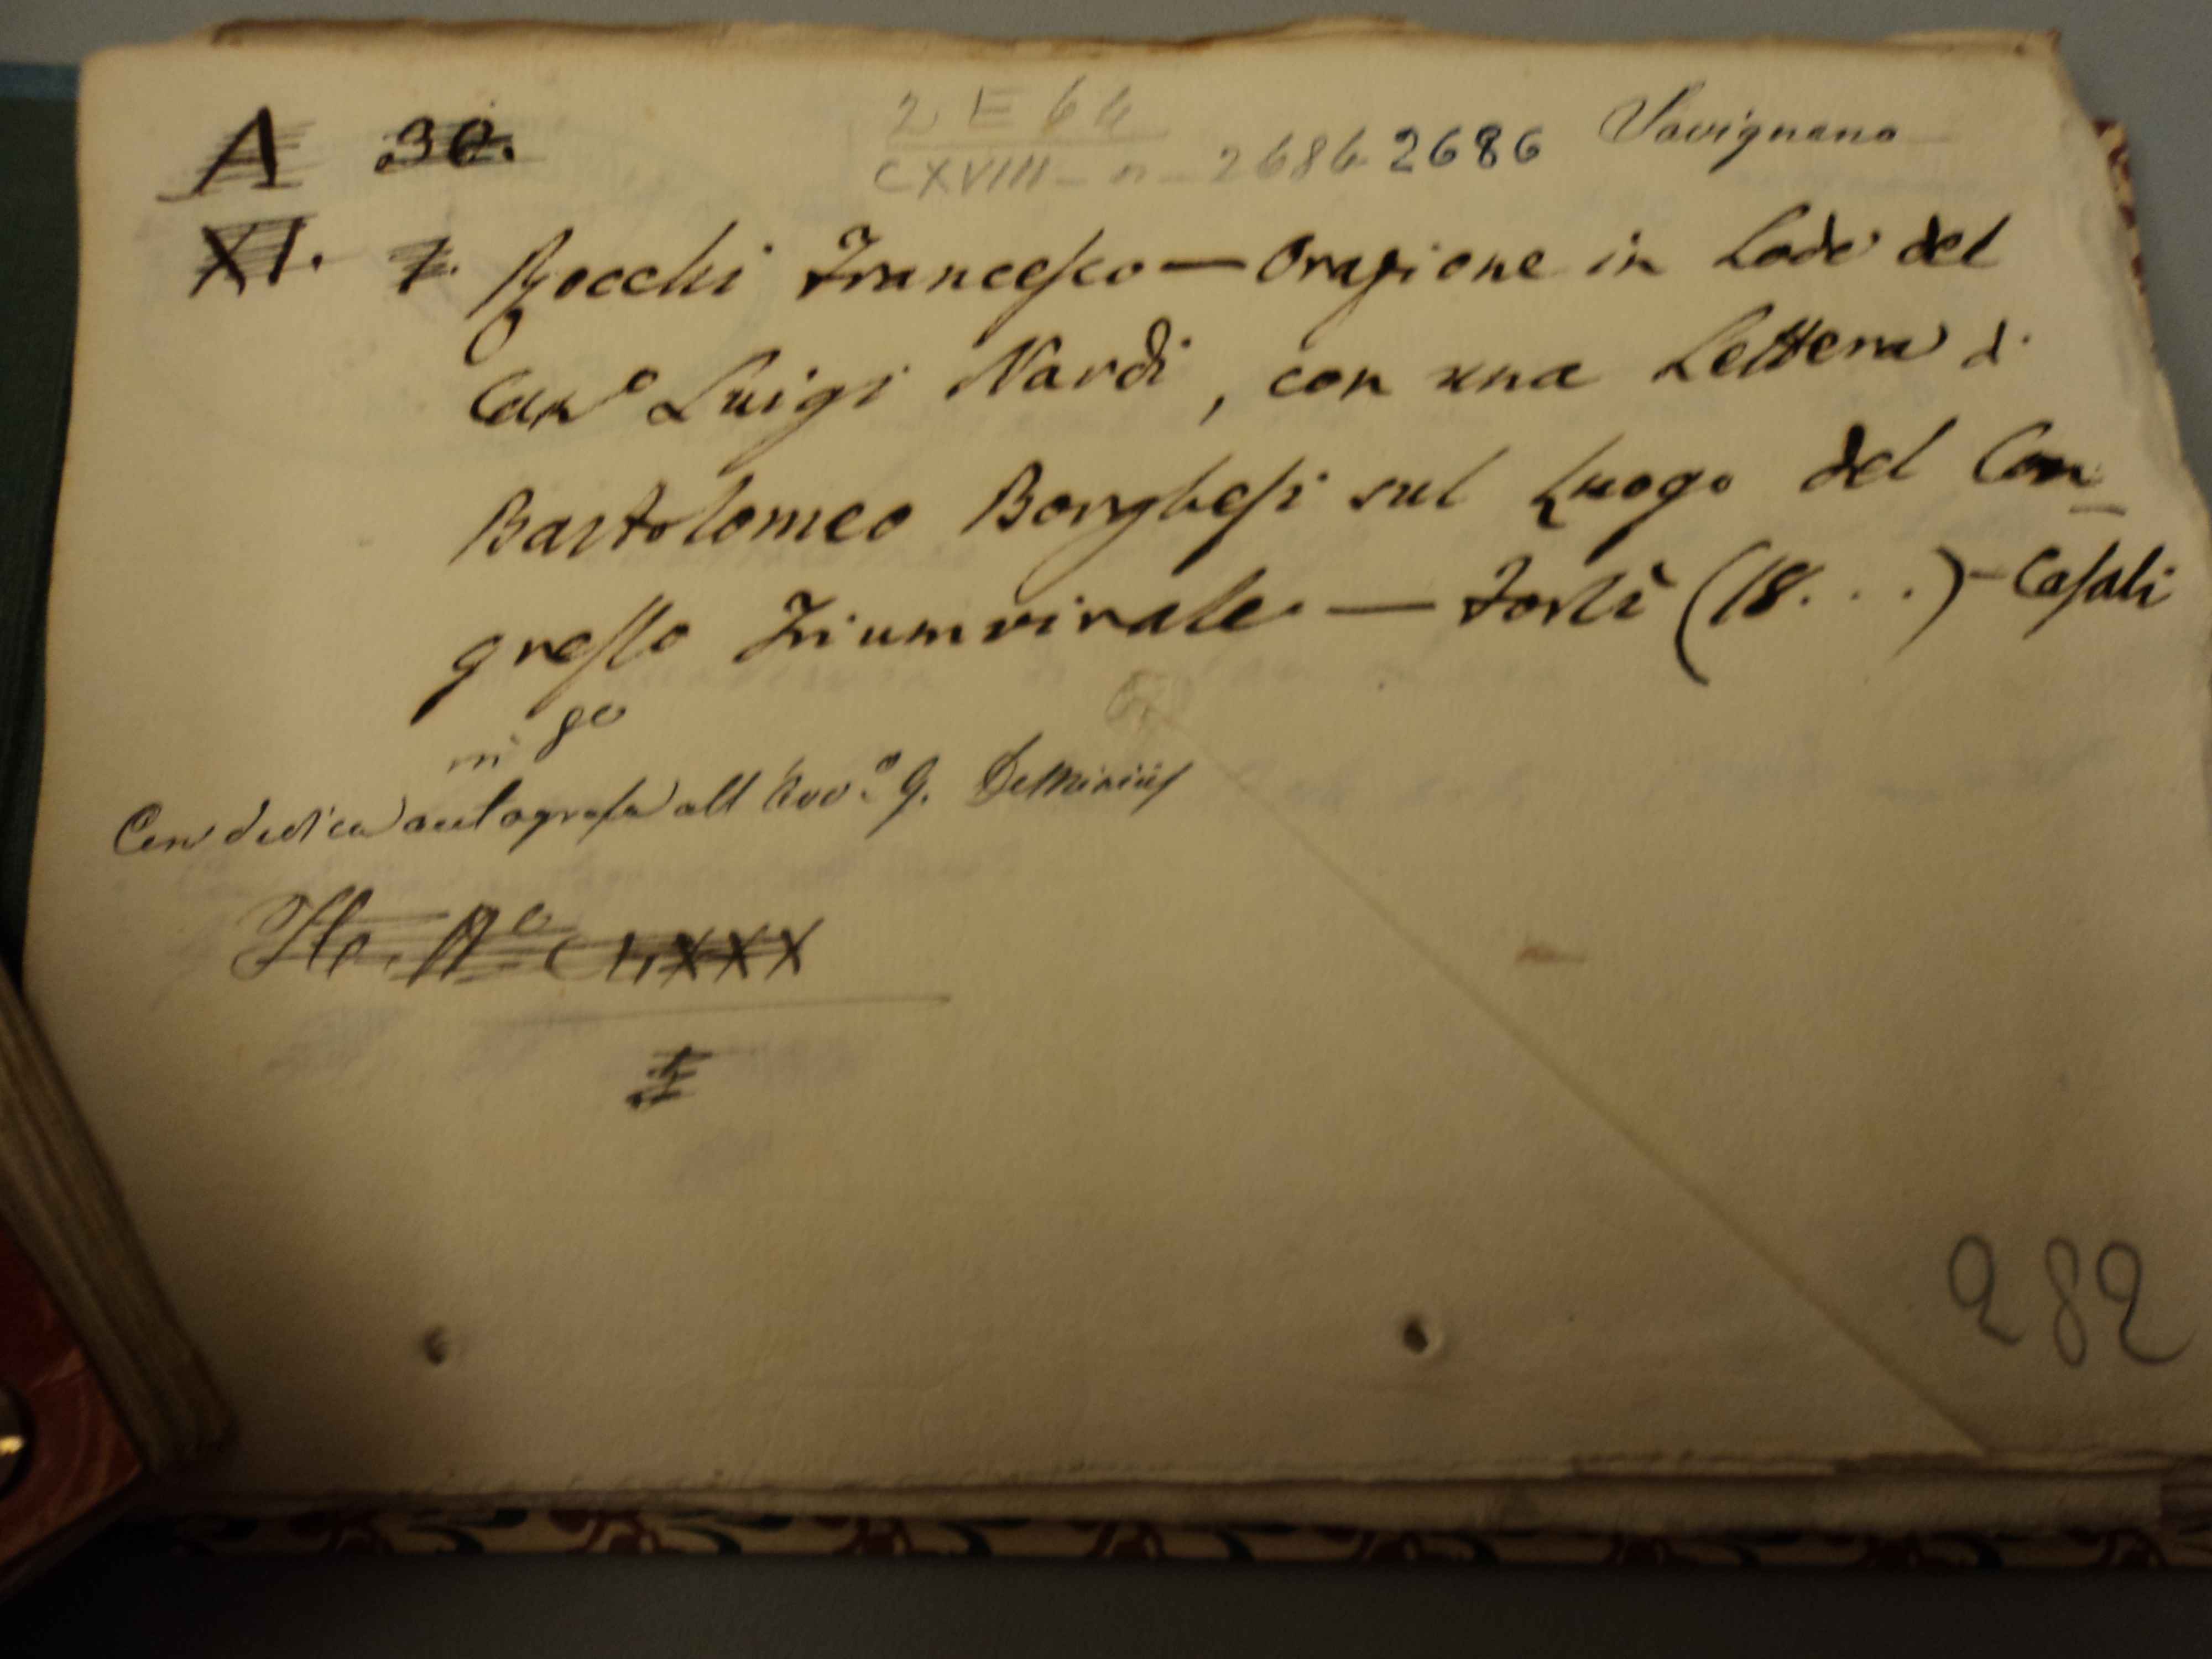 A 30.
2 E 64
CXVIII - n - 2686 2686 Savignano
XI. 7. Rocchi Francesco — Orazione in Lode del
Can.o Luigi Nardi, con una Lettera di
Bartolomeo Borghesi sul Luogo del Con-
gresso Triumvirale — Forlì (18...) - Casali
in 8o
Con dedica autografa all'Avv.o G.
CLXXX
282